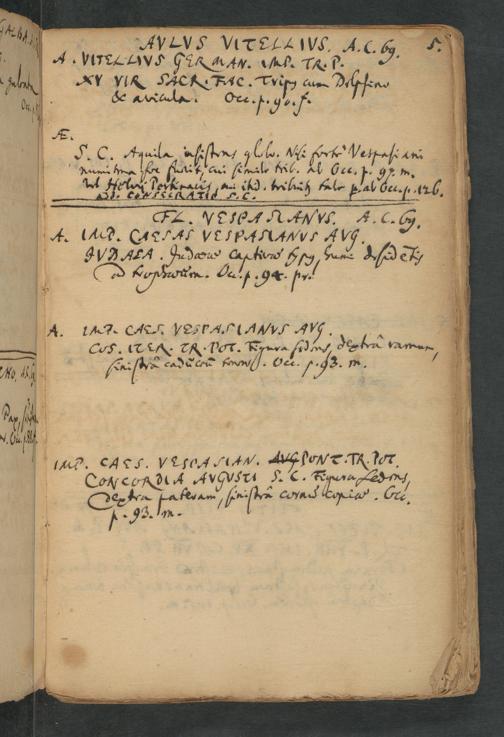 AVLVS VITELLIVS. A.C. 69. 5.
A. VITELLIVS GERMAN. IMP. TR. P.
XV VIR SACR. FAC. Tripus cum Delphino
& avicula. Occ. p. 90. f.
Æ.
S. C. Aquila insistens globo. Nisi fortè Vespasiani
numisma fuerit, cui simile trib. ab Occ. p. 97. m.
vel Helvii Pertinacis, cui itid. tribuit tale p. ab Occ. p. 126.
CONSECRATIO S.C.
FL. VESPASIANVS. A.C. 69.
A. IMP. CAESAS VESPASIANVS AVG.
IVDAEA. Judaeus captivus humi desidetis
ad trophaeum. Oc. p. 94. pr.
A. IMP. CAES. VESPASIANVS AVG.
COS. ITER. TR. POT. Figura sedens, dextrâ ramum,
sinistrâ caduceum tenens. Occ. p. 93. m.
IMP. CAES. VESPASIAN. AVG PONT. TR. POT.
CONCORDIA AVGVSTI S. C. Figura sedens,
dextra pateram, sinistrâ cornu copiae. Occ.
p. 93. m.